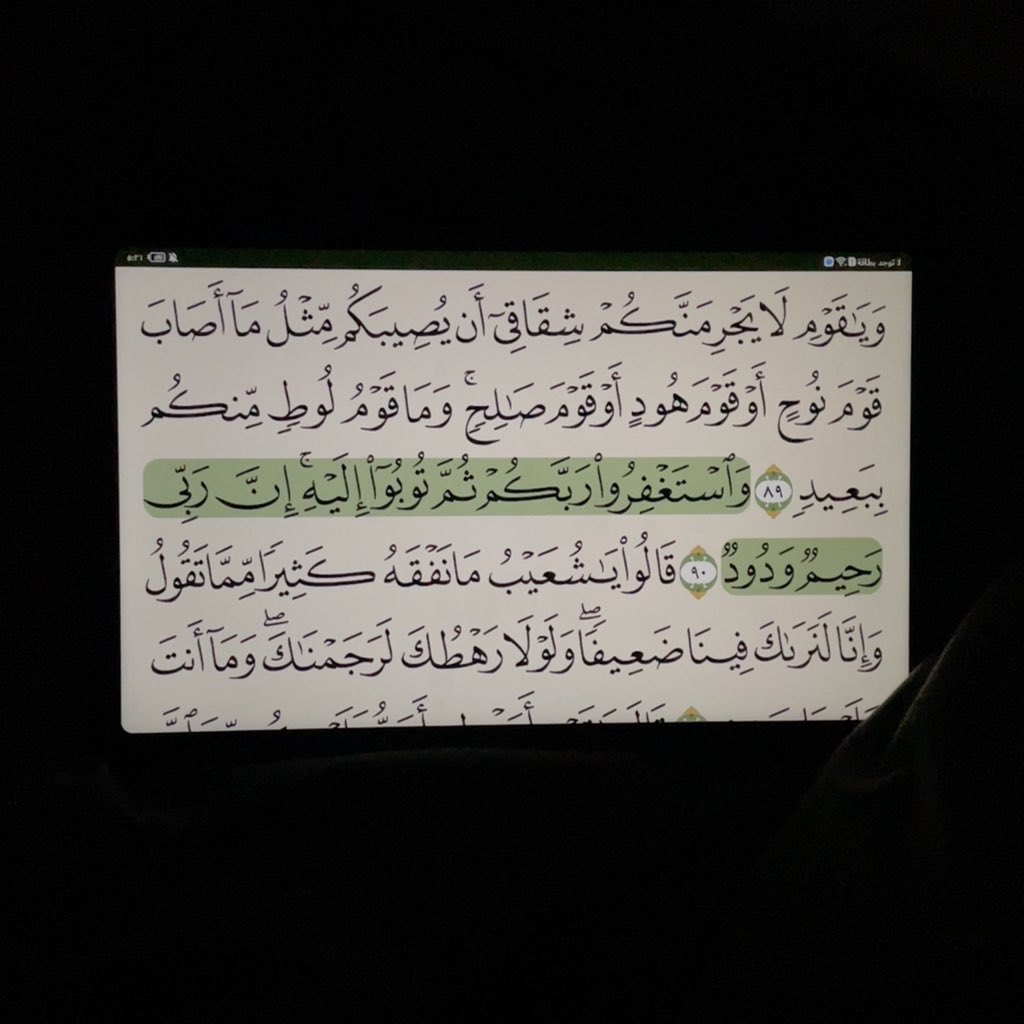 لا توجد بطاقة ٥:٢١
وَيَٰقَوْمِ لَا يَجْرِمَنَّكُمْ شِقَاقِىٓ أَن يُصِيبَكُم مِّثْلُ مَآ أَصَابَ
قَوْمَ نُوحٍ أَوْ قَوْمَ هُودٍ أَوْ قَوْمَ صَٰلِحٍۚ وَمَا قَوْمُ لُوطٍ مِّنكُم
بِبَعِيدٍ ٨٩ وَٱسْتَغْفِرُوا۟ رَبَّكُمْ ثُمَّ تُوبُوٓا۟ إِلَيْهِۚ إِنَّ رَبِّى
رَحِيمٌ وَدُودٌ ٩٠ قَالُوا۟ يَٰشُعَيْبُ مَا نَفْقَهُ كَثِيرًا مِّمَّا تَقُولُ
وَإِنَّا لَنَرَىٰكَ فِينَا ضَعِيفًاۖ وَلَوْلَا رَهْطُكَ لَرَجَمْنَٰكَۖ وَمَآ أَنتَ